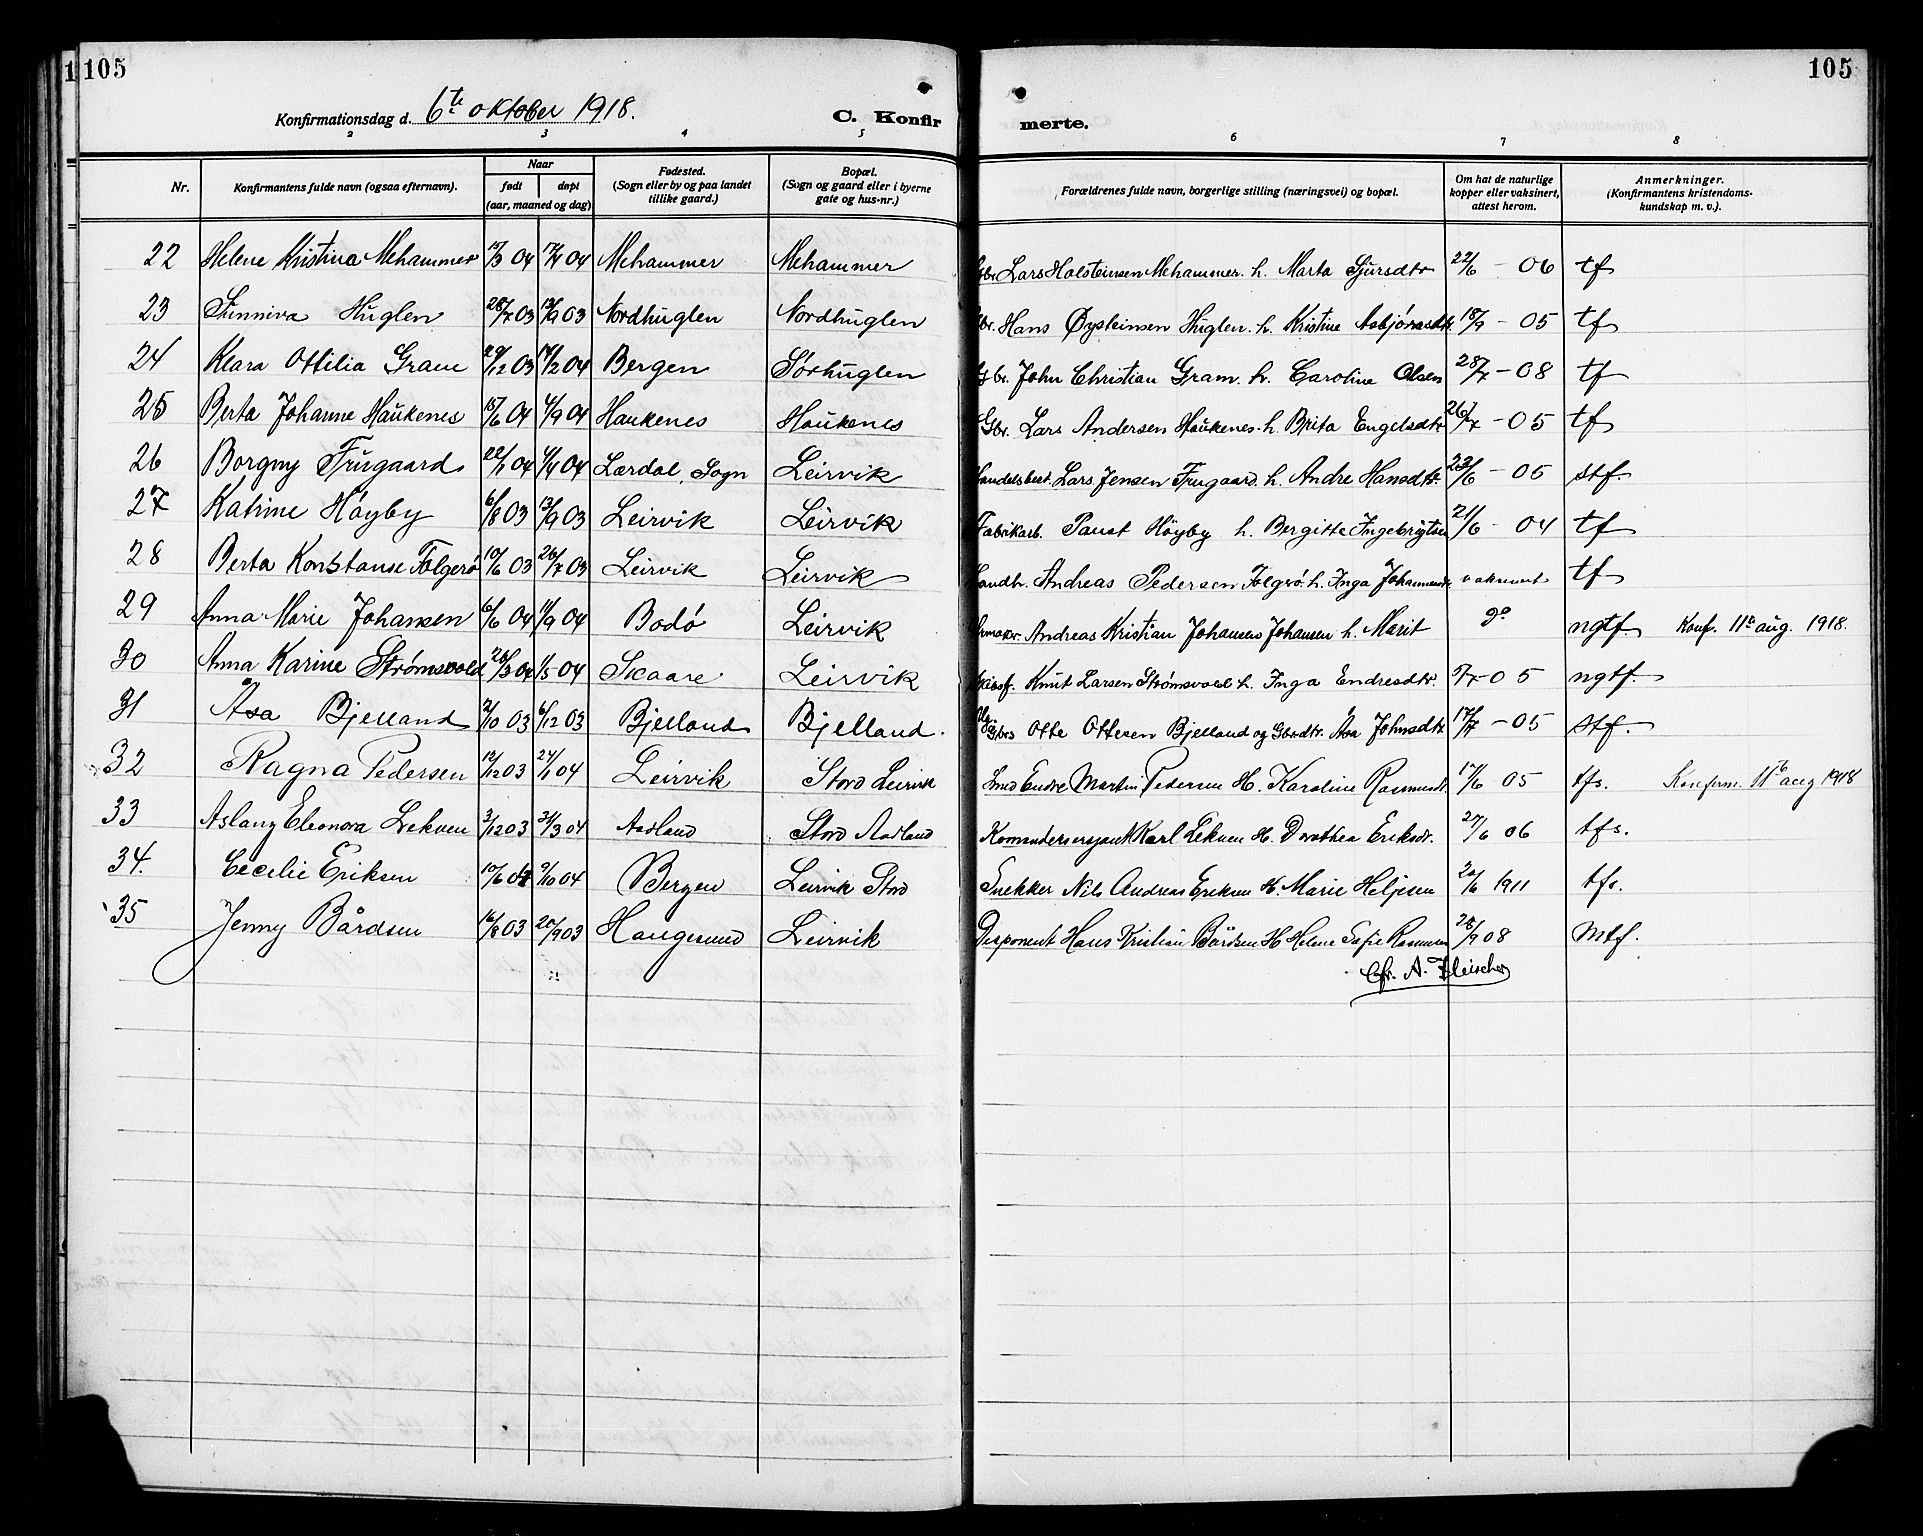 105
105
Konfirmationsdag d. 6te oktober 1918.
C. Konfir
merte.
2 3 4 5 6 7 8
Nr.
Konfirmantens fulde navn (ogsaa efternavn).
Naar
født døpt
(aar, maaned og dag)
Fødested.
(Sogn eller by og paa landet
tillike gaard.)
Bopæl.
(Sogn og gaard eller i byerne
gate og hus-nr.)
Forældrenes fulde navn, borgerlige stilling (næringsvei) og bopæl.
Om hat de naturlige
kopper eller vaksinert,
attest herom.
Anmerkninger.
(Konfirmantens kristendoms-
kundskap m. v.).
22 Helene Kristina Mehammer 15/3 04 17/4 04 Mehammer Mehammer Gbr. Lars Holsteinsen Mehammer. h. Marta Sjursdtr 22/6 - 06 tf
23 Sunniva Huglen 28/7 03 13/9 03 Nordhuglen Nordhuglen Gbr. Hans Øysteinsen Huglen. h. Kristine Asbjørnsdtr. 18/9 - 05 tf
24 Klara Ottilia Gram 29/12 03 14/2 04 Bergen Sørhuglen Gbr. John Christian Gram. h. Caroline Olsen 28/7 - 08 tf
25 Berta Johanne Haukenes 15/6 04 4/9 04 Haukenes Haukenes Gbr. Lars Andersen Haukenes. h. Brita Engelsdtr. 26/7 - 05 tf
26 Borgny Frugaard 22/1 04 4/4 04 Lærdal, Sogn Leirvik Handelsbest. Lars Jensen Frugaard. h. Andre Hansdtr. 23/6 - 05 stf.
27 Katrine Høyby 6/8 03 13/9 03 Leirvik Leirvik Fabrikarb. Paust Høyby h. Bergitte Ingebrigtsen 21/6 - 04 tf
28 Berta Konstanse Folgerø 10/6 03 26/7 03 Leirvik Leirvik Landh. Andreas Pedersen Folgerø. h. Inga Johannesdtr. vaksinert tf
29 Anna Marie Johansen 6/6 04 11/9 04 Bodø Leirvik Andreas Kristian Johansens Johansen h. Marit do ngtf Konf. 11te aug. 1918.
30 Anna Karine Strømsvold 26/3 04 1/5 04 Skaare Leirvik Knut Larsen Strømsvold h. Inga Endresdtr. 5/7 - 05 ngtf.
31 Åsa Bjelland 2/10 03 6/12 03 Bjelland Bjelland. Gbrs Otte Ottesen Bjelland og Gbrdtr. Åsa Johnsdtr. 17/7 - 05 stf.
32 Ragna Pedersen 12/12 03 24/1 04 Leirvik Stord Leirvik Smed Endre Martin Pedersen H. Karoline Rasmusdt. 17/6 05 tfs. Konferm. 11te aug 1918
33 Aslaug Eleonora Lekven 3/12 03 31/3 04 Aadland Stord Aadland Komandersersjant Karl Lekven H. Dorothea Eriksdr. 27/6 06 tfs.
34. Cecelie Eriksen 10/6 04 9/10 04 Bergen Leirvik Stord Snekker Nils Andreas Eriksen H. Marie Heljesen 20/6 1911 tfs.
35 Jenny Bårdsen 16/8 03 20/9 03 Haugesund Leirvik Disponent Hans Kristian Bårdsen H Helene Sofie Rasmusen 28/9 08 Mtf.
Chr. A. Fleischer